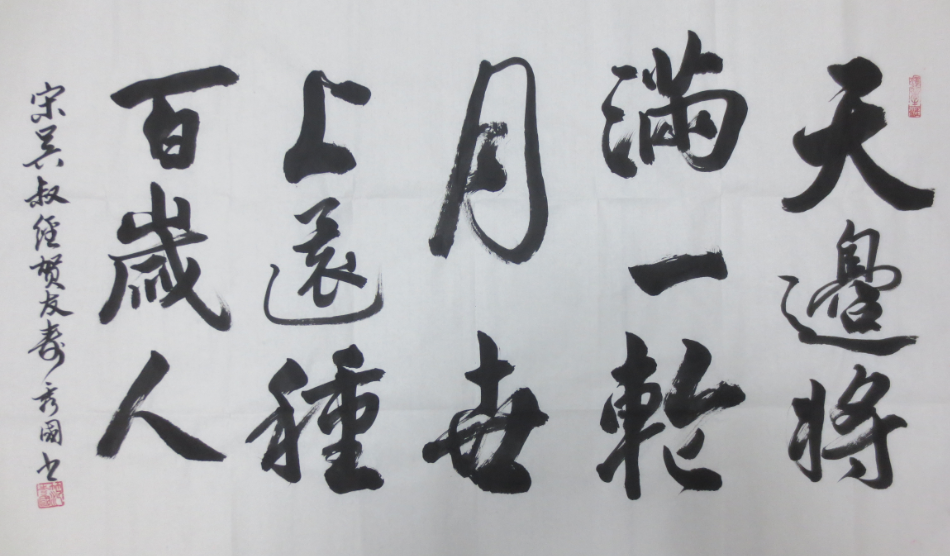 天邊將
滿一輪
月世
上還種
百歲人
宋吳叔經賀友壽秀國书